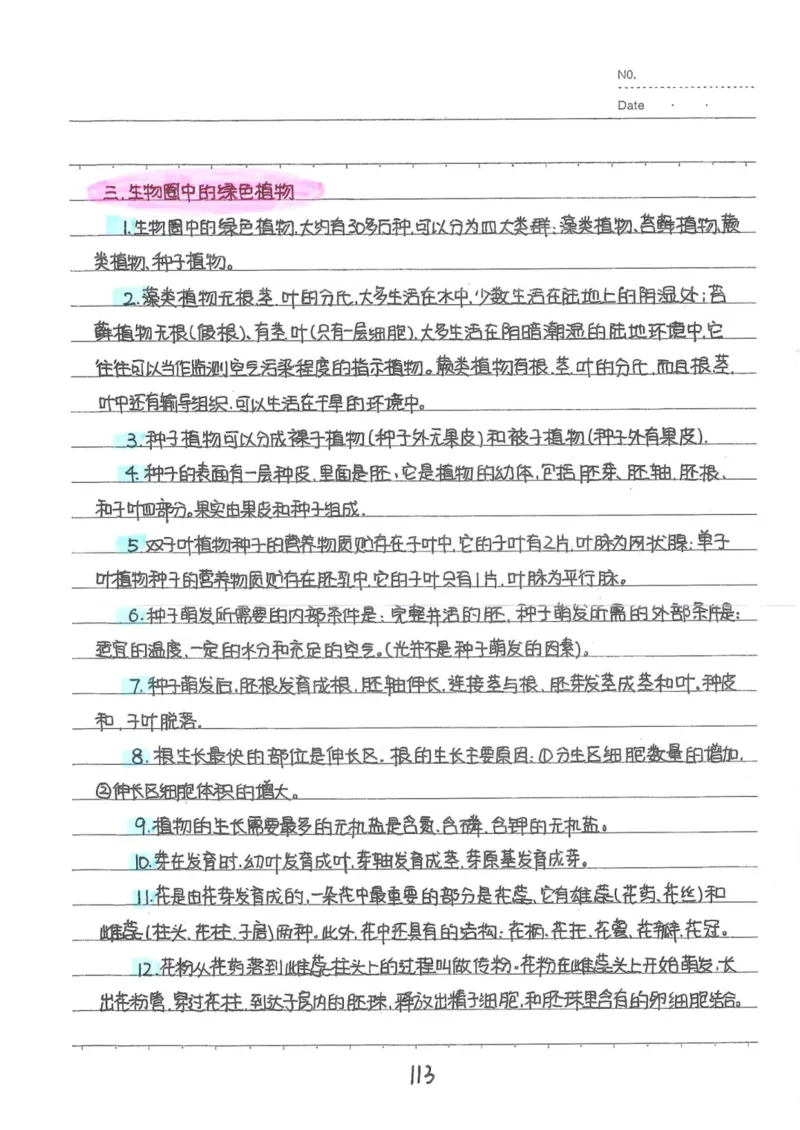 NO.
Date
三.生物圈中的绿色植物
1.生物圈中的绿色植物,大约有30多万种,可以分为四大类群:藻类植物、苔藓植物、蕨
类植物、种子植物。
2.藻类植物无根、茎、叶的分化,大多生活在水中,少数生活在陆地上的阴湿处;苔
藓植物无根(假根)、有茎、叶(只有一层细胞),大多生活在阴暗潮湿的陆地环境中,它
往往可以当作监测空气污染程度的指示植物。蕨类植物有根、茎、叶的分化,而且根、茎、
叶中还有输导组织,可以生活在干旱的环境中。
3.种子植物可以分成裸子植物(种子外无果皮)和被子植物(种子外有果皮).
4.种子的表面有一层种皮,里面是胚,它是植物的幼体,包括胚芽、胚轴、胚根、
和子叶四部分。果实由果皮和种子组成.
5.双子叶植物种子的营养物质贮存在子叶中,它的子叶有2片,叶脉为网状脉;单子
叶植物种子的营养物质贮存在胚乳中,它的子叶只有1片,叶脉为平行脉。
6.种子萌发所需要的内部条件是:完整并活的胚,种子萌发所需的外部条件是:
适宜的温度、一定的水分和充足的空气。(光并不是种子萌发的因素)。
7.种子萌发后,胚根发育成根,胚轴伸长,连接茎与根、胚芽发茎成茎和叶。种皮
和,子叶脱落.
8.根生长最快的部位是伸长区.根的生长主要原因:①分生区细胞数量的增加,
②伸长区细胞体积的增大。
9.植物的生长需要最多的无机盐是含氮、含磷、含钾的无机盐。
10.芽在发育时,幼叶发育成叶,芽轴发育成茎,芽原基发育成芽。
11.花是由花芽发育成的,一朵花中最重要的部分是花蕊,它有雄蕊(花药、花丝)和
雌蕊(柱头、花柱、子房)两种。此外,花中还具有的结构:花柄、花托、花萼、花瓣、花冠。
12.花粉从花药落到雌蕊柱头上的过程叫做传粉。花粉在雌蕊头上开始萌发,长
出花粉管,穿过花柱,到达子房内的胚珠,释放出精子细胞,和胚珠里含有的卵细胞结合。
113